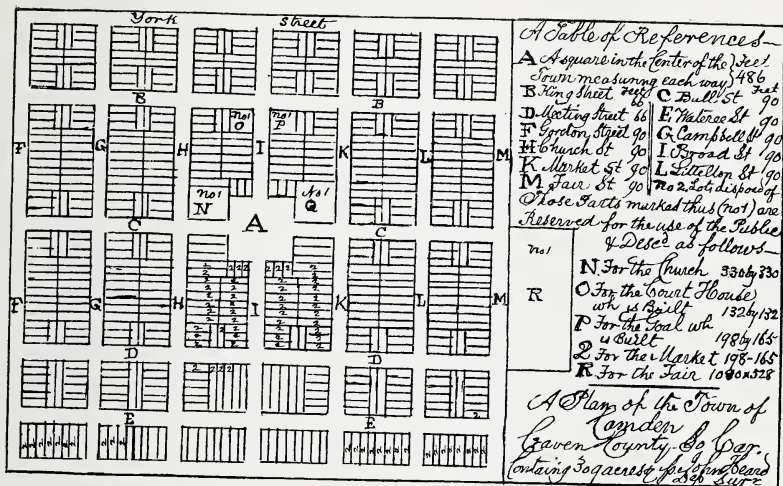 York Street
A Table of References—
A A square in the Center of the } Feet
Town measuring each way } 486
B King street Feet 66 C Bull St Feet 90
D Meeting Street 66 E Wateree St 90
F Gordon Street 90 G Campbell St 90
H Church St 90 I Broad St 90
K Market St 90 L Littelton St 90
M Fair St 90 No 2. Lots disposed of
Those Parts marked thus (no1) are
Reserved for the use of the Public
& Desc.d as follows—
N For the Church 330 by 330
O For the Court House
wh is Built 132 by 132
P For the Goal wh
is Built 198 by 165
2 For the Market 198-165
R For the Fair
A Plan of the Town of
Camden
Craven County. So Car.
Containg 309 acres John Heard
Dep Surr
B B
no1 O no1 P
F G H I K L M
no1 N A No1 Q
C C
no1 R
F G H I K L M
D D
E E